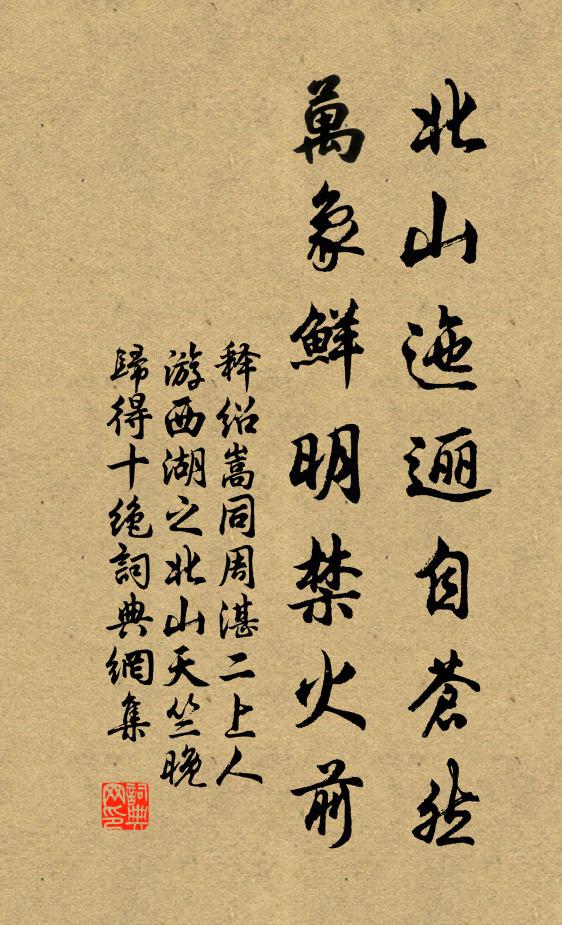 北山迤逦自蒼然
萬象鮮明禁火前
释绍嵩同周湛二上人
游西湖之北山天竺晚
歸得十绝詞典網集
詞典
网印